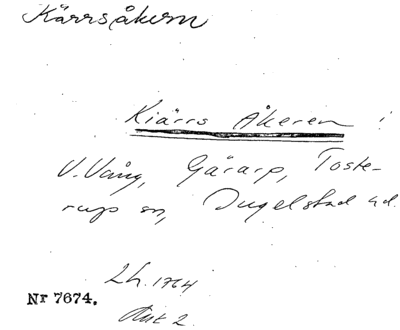 Kärrsåkern
Kiärrs Åkeren i
V. Vång, Gärarp, Toste-
rup sn, Ingelstad hd.
Lh. 1764
Nr 7674.
Akt 2.